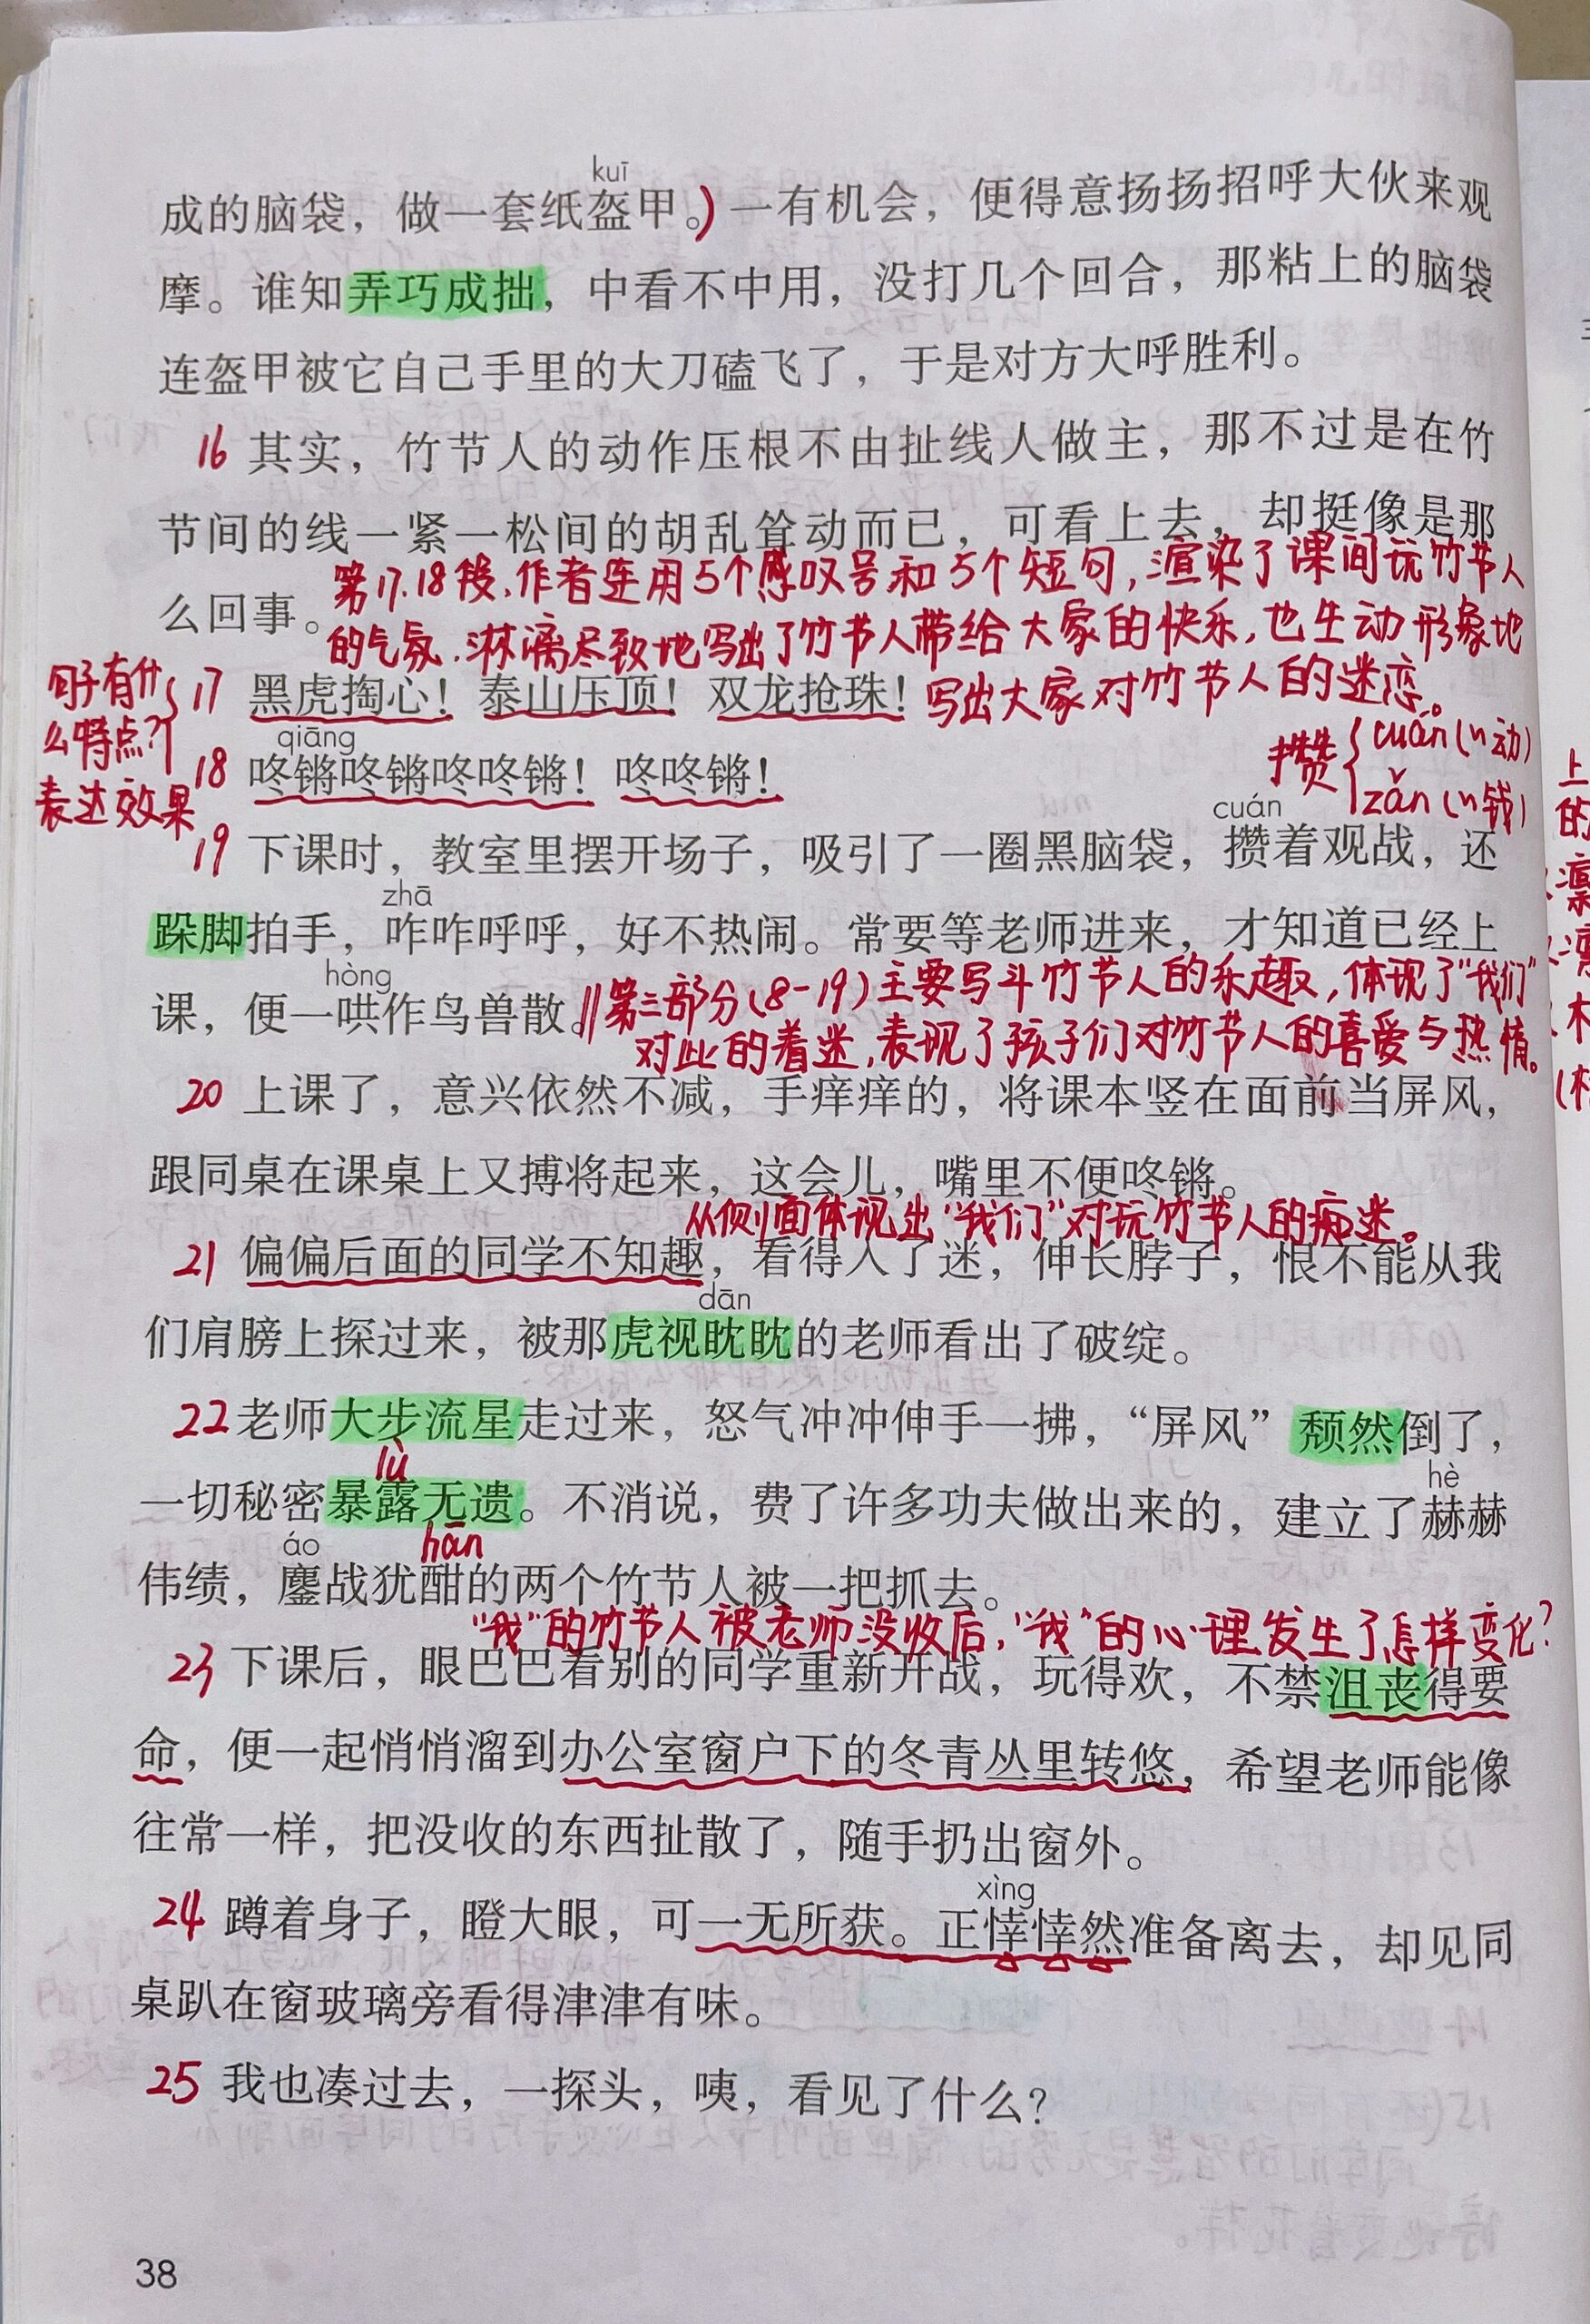 kuī
成的脑袋，做一套纸盔甲。）一有机会，便得意扬扬招呼大伙来观
摩。谁知弄巧成拙，中看不中用，没打几个回合，那粘上的脑袋
连盔甲被它自己手里的大刀磕飞了，于是对方大呼胜利。
16 其实，竹节人的动作压根不由扯线人做主，那不过是在竹
节间的线一紧一松间的胡乱耸动而已，可看上去，却挺像是那
么回事。
第17.18段，作者连用5个感叹号和5个短句，渲染了课间玩竹节人
的气氛，淋漓尽致地写出了竹节人带给大家的快乐，也生动形象地
写出大家对竹节人的迷恋。
句子有什
么特点？
表达效果
17 黑虎掏心！泰山压顶！双龙抢珠！
qiāng
18 咚锵咚锵咚咚锵！咚咚锵！
攒 cuán(~动)
zǎn(~钱)
cuán
19 下课时，教室里摆开场子，吸引了一圈黑脑袋，攒着观战，还
zhā
跺脚拍手，咋咋呼呼，好不热闹。常要等老师进来，才知道已经上
hòng
课，便一哄作鸟兽散。
‖第三部分(8-19)主要写斗竹节人的乐趣，体现了“我们”
对此的着迷，表现了孩子们对竹节人的喜爱与热情。
20 上课了，意兴依然不减，手痒痒的，将课本竖在面前当屏风，
跟同桌在课桌上又搏将起来，这会儿，嘴里不便咚锵。
从侧面体现出“我们”对玩竹节人的痴迷。
21 偏偏后面的同学不知趣，看得入了迷，伸长脖子，恨不能从我
dān
们肩膀上探过来，被那虎视眈眈的老师看出了破绽。
22 老师大步流星走过来，怒气冲冲伸手一拂，“屏风”颓然倒了，
lù
hè
一切秘密暴露无遗。不消说，费了许多功夫做出来的，建立了赫赫
áo
hān
伟绩，鏖战犹酣的两个竹节人被一把抓去。
“我”的竹节人被老师没收后，“我”的心理发生了怎样变化？
23 下课后，眼巴巴看别的同学重新开战，玩得欢，不禁沮丧得要
命，便一起悄悄溜到办公室窗户下的冬青丛里转悠，希望老师能像
往常一样，把没收的东西扯散了，随手扔出窗外。
xìng
24 蹲着身子，瞪大眼，可一无所获。正悻悻然准备离去，却见同
桌趴在窗玻璃旁看得津津有味。
25 我也凑过去，一探头，咦，看见了什么？
38
上
的